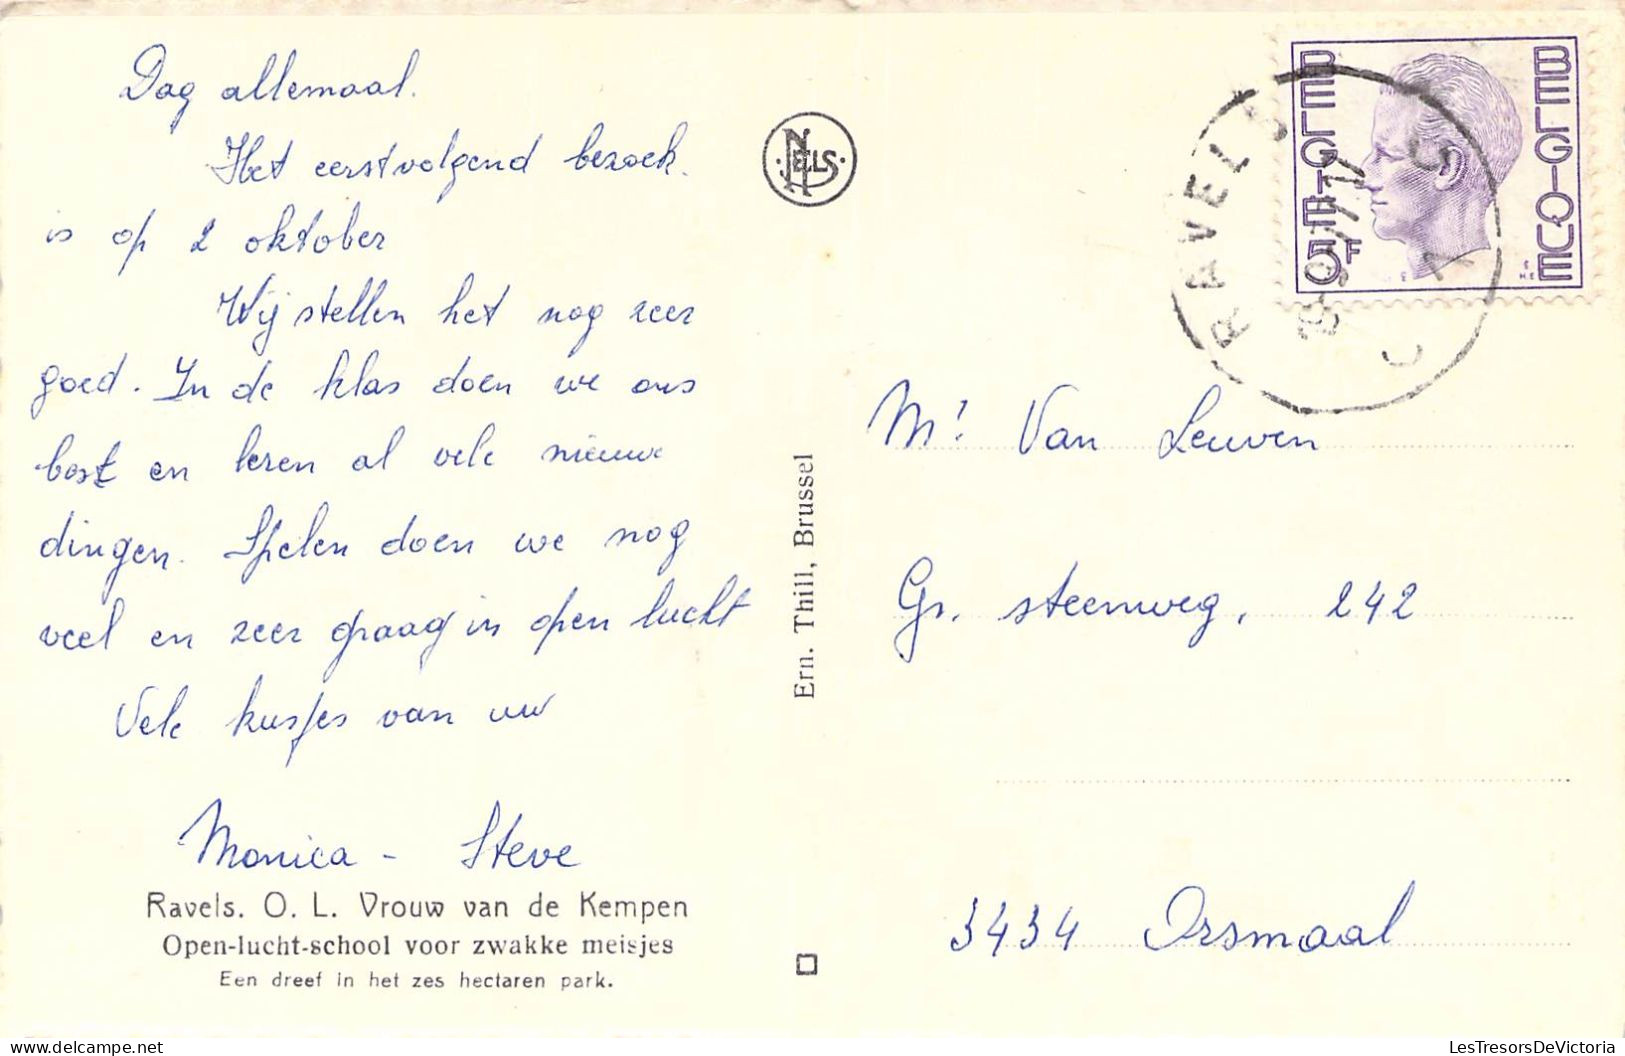 Dag allemaal.
Het eerstvolgend bezoek
is op 2 oktober
Wij stellen het nog zeer
goed. In de klas doen we ons
best en leren al vele nieuwe
dingen. Spelen doen we nog
veel en zeer graag in open lucht
Vele kusjes van uw
Monica - Steve
Ravels. O. L. Vrouw van de Kempen
Open-lucht-school voor zwakke meisjes
Een dreef in het zes hectaren park.
NELS
Ern. Thill, Brussel
BELGIE 5F
BELGIQUE
RAVELS
Mr. Van Leuven
Gr. steenweg, 242
3434 Orsmaal
LesTresorsDeVictoria